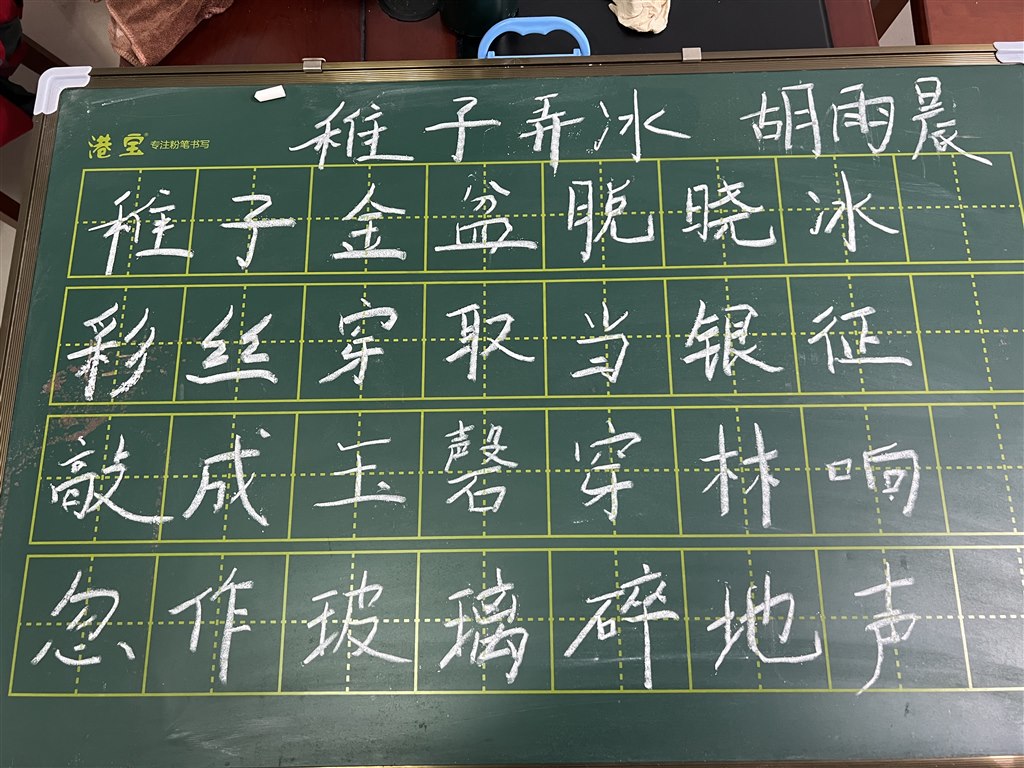 稚子弄冰 胡雨晨
港宝® 专注粉笔书写
稚子金盆脱晓冰
彩丝穿取当银征
敲成玉磬穿林响
忽作玻璃碎地声